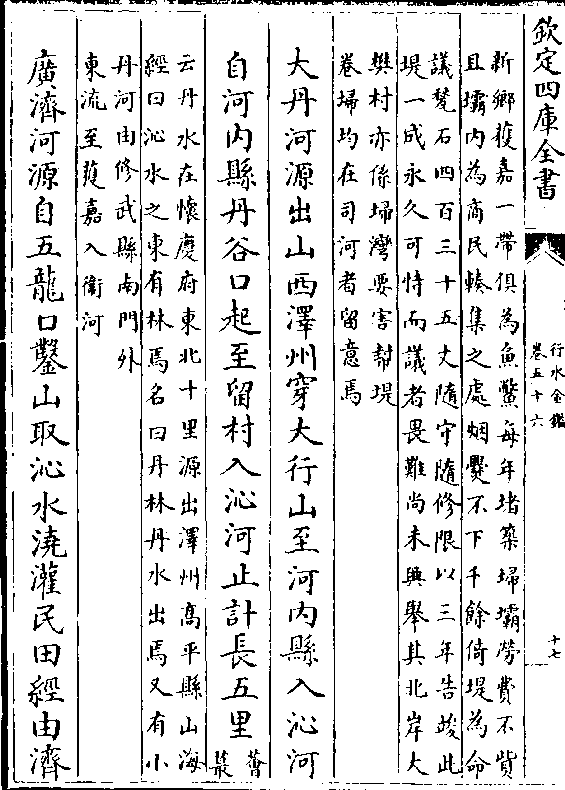 欽定四庫全書
行水金鑑
卷五十六
十七
新鄉獲嘉一帶俱為魚鱉每年堵築埽壩勞費不貲
且壩内為商民輳集之處烟㸑不下千餘倚堤為命
議甃石四百三十五丈隨守隨修限以三年告竣此
堤一成永久可恃而議者畏難尚未興舉其北岸大
樊村亦係埽灣要害幇堤
卷埽均在司河者留意焉
大丹河源出山西澤州穿大行山至河内縣入沁河
自河内縣丹谷口起至留村入沁河止計長五里
薈
蕞
云丹水在懷慶府東北十里源出澤州高平縣山海
經曰沁水之東有林焉名曰丹林丹水出焉又有小
丹河由修武縣南門外
東流至獲嘉入衞河
廣濟河源自五龍口鑿山取沁水澆灌民田經由濟